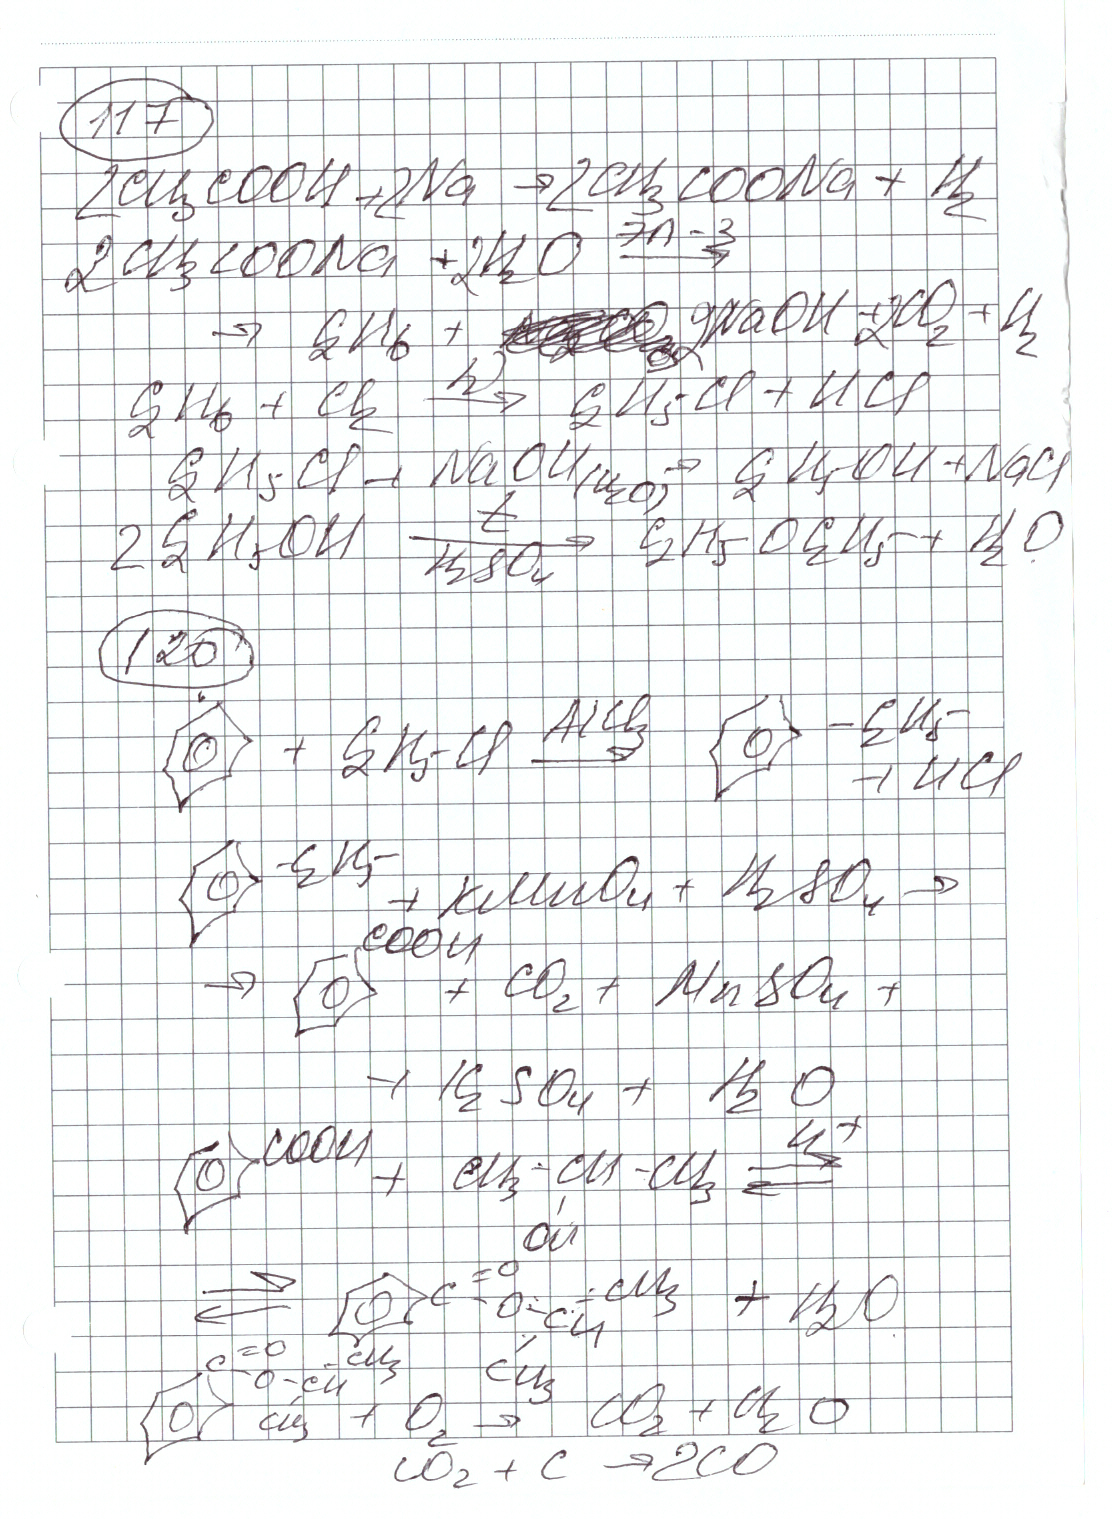 117
2CH₃COOH + 2Na → 2CH₃COONa + H₂
2CH₃COONa + 2H₂O эл-з →
→ C₂H₆ + 2NaOH + 2CO₂ + H₂
C₂H₆ + Cl₂ hν → C₂H₅Cl + HCl
C₂H₅Cl + NaOH(H₂O) → C₂H₅OH + NaCl
2C₂H₅OH t H₂SO₄ → C₂H₅OC₂H₅ + H₂O
120
+ C₂H₅Cl AlCl₃ → -C₂H₅
+ HCl
-C₂H₅ + KMnO₄ + H₂SO₄ →
→ COOH + CO₂ + MnSO₄ +
+ K₂SO₄ + H₂O
COOH + CH₃-CH-CH₃ H⁺ ⇌
OH
⇌ C=O -O-CH-CH₃ + H₂O
CH₃
C=O O-CH-CH₃
CH₃ + O₂ → CO₂ + H₂O
CO₂ + C → 2CO